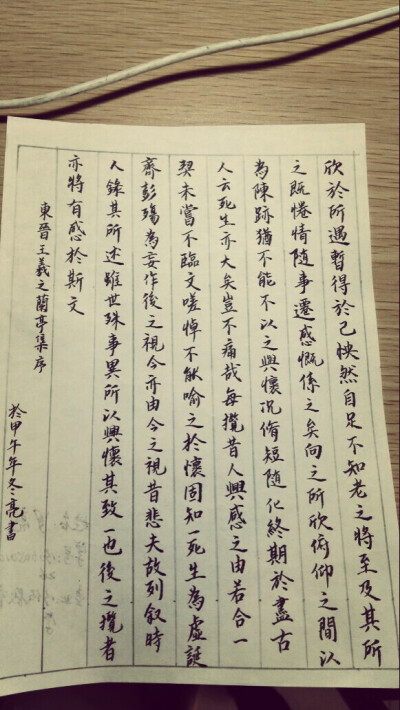 欣於所遇暫得於己怏然自足不知老之將至及其所
之既惓情隨事遷感慨係之矣向之所欣俯仰之間以
為陳跡猶不能不以之興懷況脩短隨化終期於盡古
人云死生亦大矣豈不痛哉每攬昔人興感之由若合一
契未嘗不臨文嗟悼不能喻之於懷固知一死生為虛誕
齊彭殤為妄作後之視今亦由今之視昔悲夫故列敘時
人錄其所述雖世殊事異所以興懷其致一也後之攬者
亦將有感於斯文
東晉王羲之蘭亭集序
於甲午年冬亮書